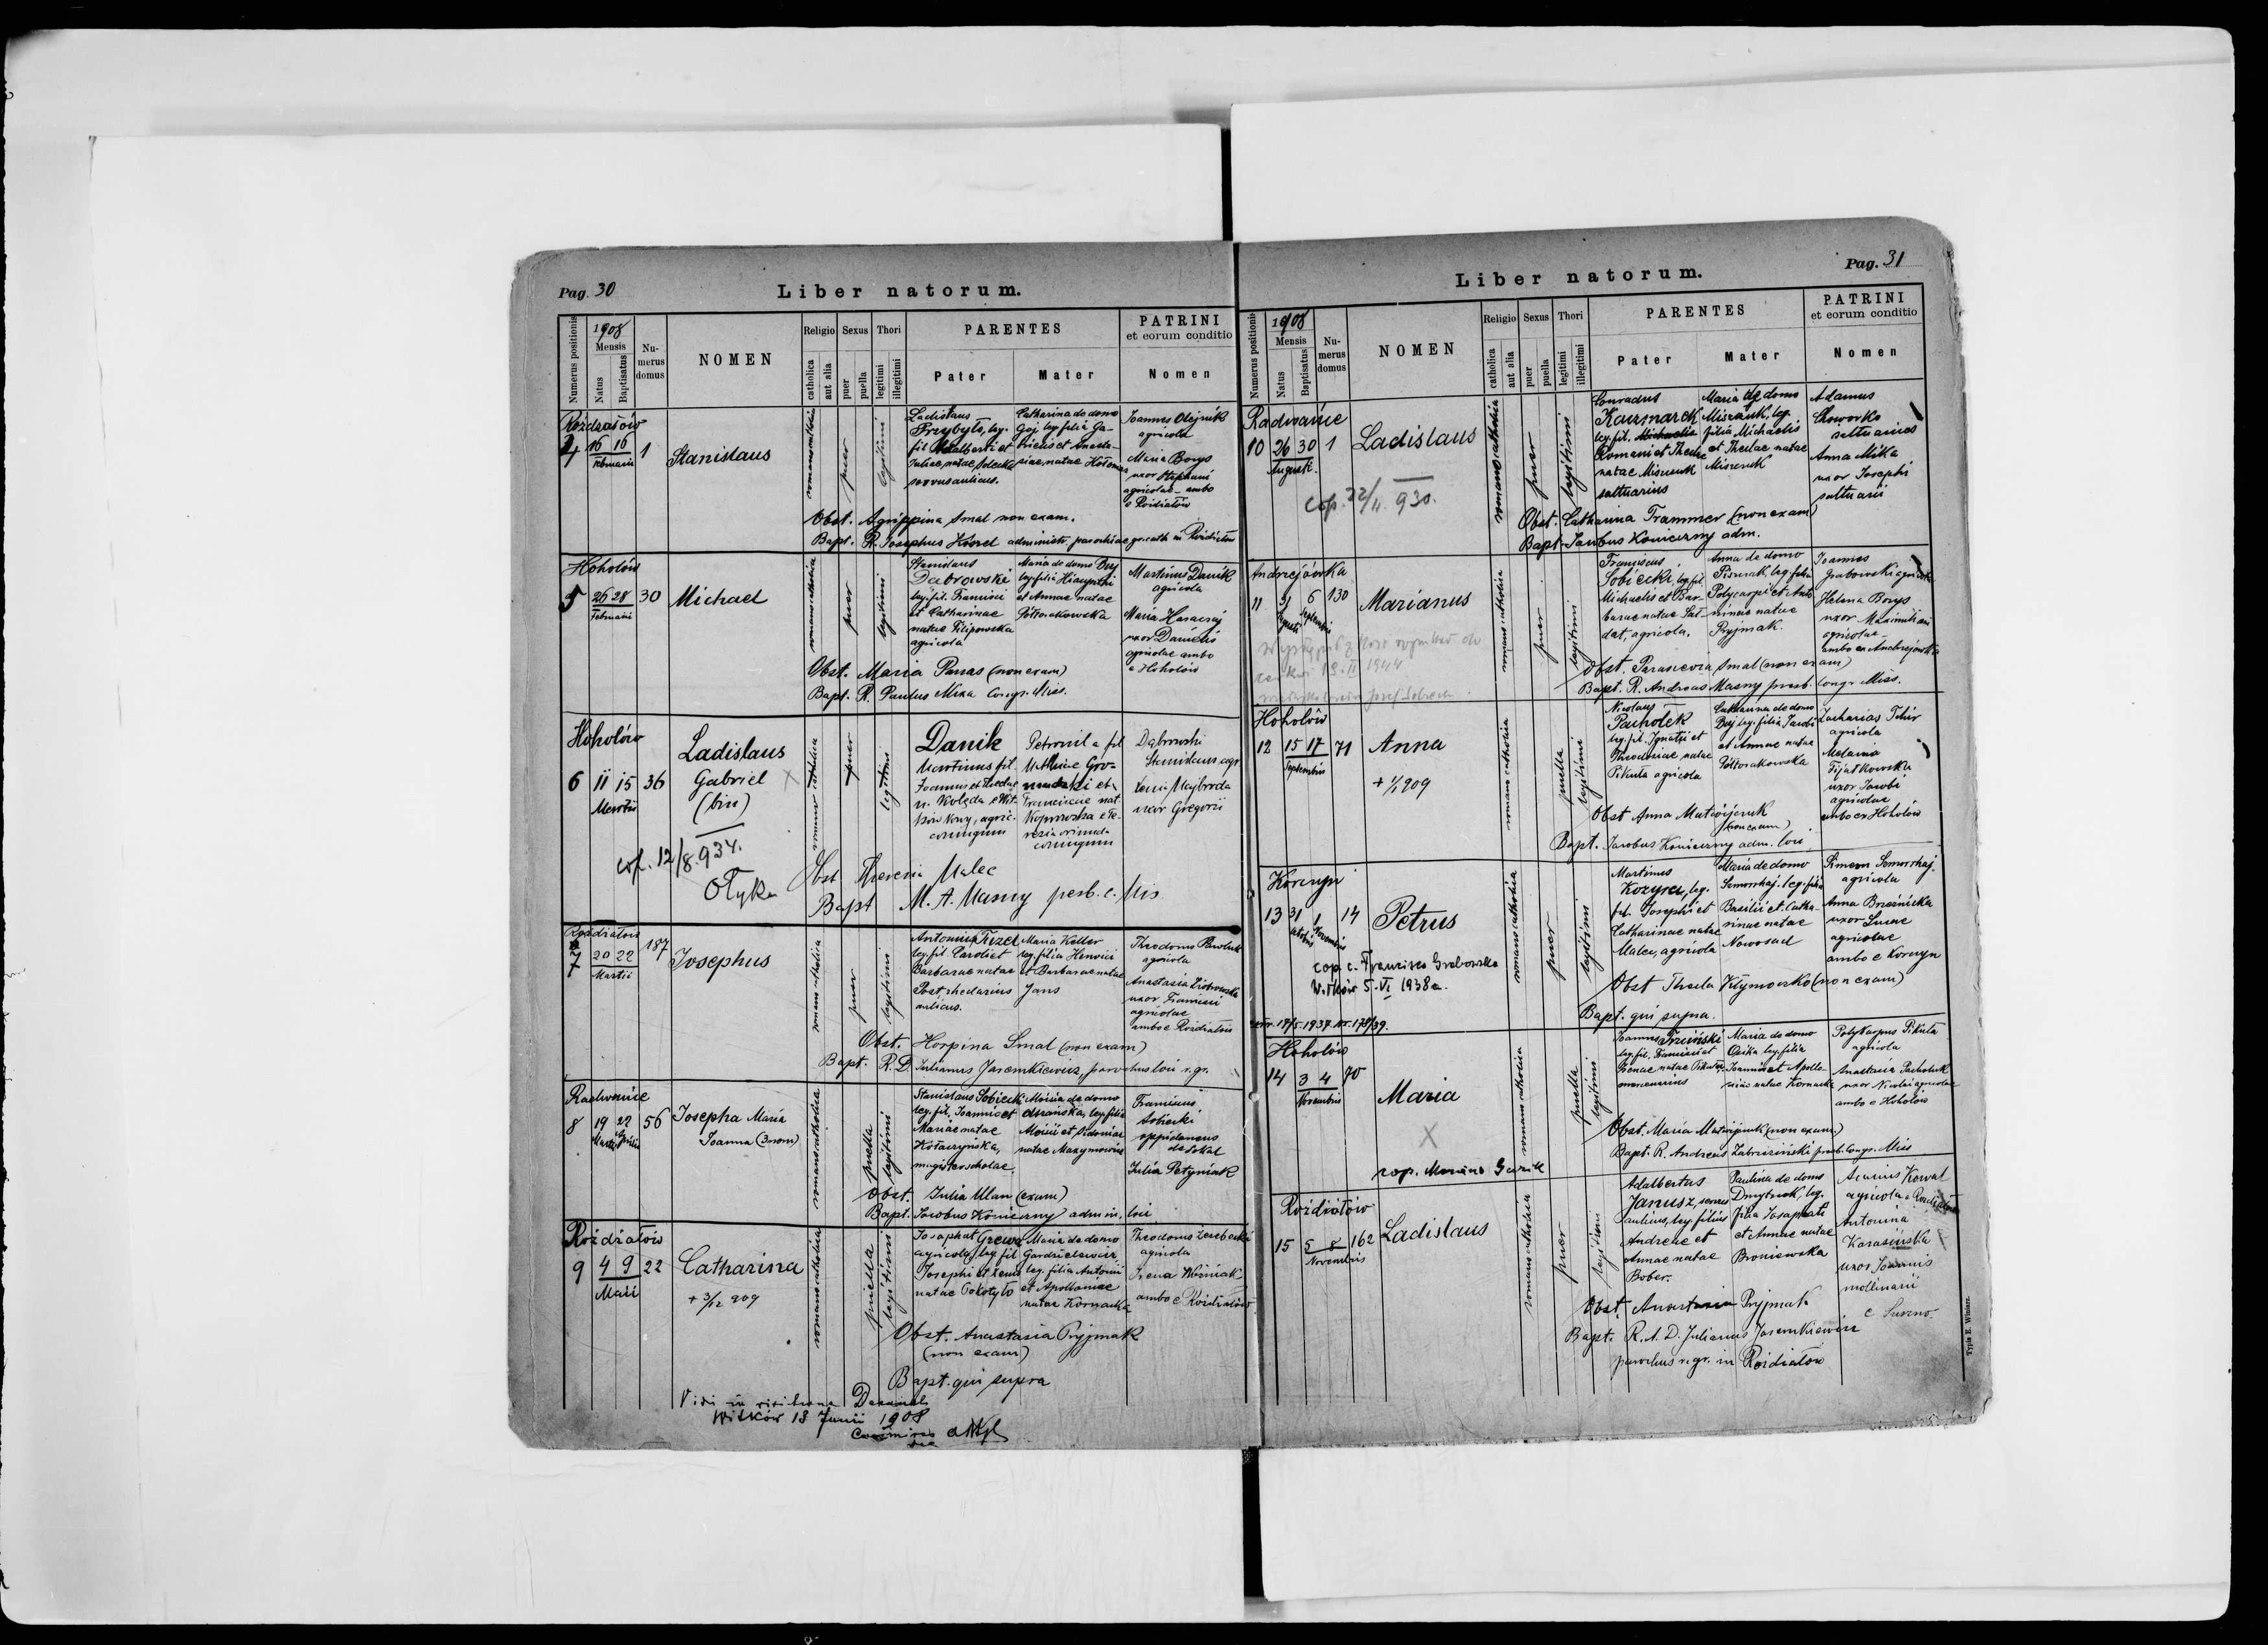 Pag. 30
Liber natorum.
Numerus positionis
1908
Mensis
Natus
Baptisatus
Nu-
merus
domus
NOMEN
Religio
catholica
aut alia
Sexus
puer
puella
Thori
legitimi
illegitimi
PARENTES
Pater
Mater
PATRINI
et eorum conditio
Nomen
Rożdżałów
4 16 16 1
Februarii
Stanislaus
romano catholica
puer
legitimi
Ladislaus
Przybyło, leg.
fil. Adalberti et
Juliae, natae
servus aulicus.
Catharina de domo
Gaj leg. filia Ga-
brielis et Anasta-
siae, natae
Joannes Olejnik
agricola
Maria Borys
uxor Stephani
agricolae - ambo
e Rożdżałów
Obst. Agrippina Smal non exam.
Bapt. R. Josephus Kisiel administr. parochiae gr. cath. in Rożdżałów
Hohołów
5 26 28 30
Februarii
Michael
romano catholica
puer
legitimi
Stanislaus
Dąbrowski
leg. fil. Francisci
et Catharinae
natae Filipowska
agricola
Maria de domo Buj
leg. filia Hiacynthi
et Annae natae
Półtorakowska
Martinus Danik
agricola
Maria Harasaj
uxor Danielis
agricolae ambo
e Hohołów
Obst. Maria Panas (non exam)
Bapt. R. Paulus Mixa Congr. Miss.
Hohołów
6 11 15 36
Martii
Ladislaus
Gabriel
(bin)
X
cop. 12/8. 934.
Ołyka
puer
legitimi
Danik
Martinus fil.
Joannis et Theclae
n. Kolęda e Wit-
ków Nowy, agric.
coniugum
Petronila fil
Mathiae Gro-
et
Franciscae nat.
coniugum
Dąbrowski
Stanislaus agr
Xenia Majbroda
uxor Gregorii
Obst. Theresia Malec
Bapt M. A. Masny presb. c. Mis.
Rożdżałów
7 20 22 187
Martii
Josephus
puer
legitimi
Antonius Trzel
leg. fil. Caroli et
Barbarae natae
aulicus.
Maria Keller
leg. filia Henrici
et Barbarae natae
Jans
Theodorus Pawluk
agricola
Anastasia Piotrowska
uxor Francisci
agricolae
ambo e Rożdżałów
Obst. Horpina Smal (non exam)
Bapt. R. D. Julianus Jaremkiewicz, parochus loci r. gr.
Radwańce
8 19 22 56
Martii Aprilis
Josepha Maria
Joanna (3 nom)
romano catholica
puella
legitimi
Stanislaus Sobiecki
leg. fil. Joannis et
Mariae natae
Kotarzyńska,
magister scholae.
Maria de domo
leg. filia
Aloisii et Sidoniae
natae Maxymowicz
Franciscus
Sobiecki
oppidanus
de Sokal
Julia Petyniak
Obst. Julia Ulan (exam)
Bapt. Jacobus Konieczny admin. loci
Rożdżałów
9 4 9 22
Maii
Catharina
+ 3/12 909
romano catholica
puella
legitimi
Josaphat Grewa
agricola, leg. fil
Josephi et Xeniae
natae Pokotyło
Maria de domo
leg. filia Antonii
et Apolloniae
natae Kornacka
Theodorus Zerebecki
agricola
Irena Woźniak
ambo e Rożdżałów
Obst. Anastasia Pryjmak
(non exam)
Bapt. qui supra
Vidi in visitatione Decanali
Witków 18 Junii 1908
Casimirus
Pag. 31
Liber natorum.
Numerus positionis
1908
Mensis
Natus
Baptisatus
Nu-
merus
domus
NOMEN
Religio
catholica
aut alia
Sexus
puer
puella
Thori
legitimi
illegitimi
PARENTES
Pater
Mater
PATRINI
et eorum conditio
Nomen
Radwańce
10 26 30 1
Augusti.
Ladislaus
cop. 22/II. 930.
romano catholica
puer
legitimi
Conradus
Kaczmarek
leg. fil. Michaelis
Romani et Theclae
natae Miszczuk
saltuarius
Maria de domo
Miszczuk, leg.
filia Michaelis
et Theclae natae
Miszczuk
Adamus
Choworko
saltuarius
Anna Mika
uxor Josephi
saltuarii
Obst. Catharina Trammer (non exam)
Bapt. Jacobus Konieczny adm.
Andrzejówka
11 31 6 130
Augusti Septembris
Marianus
romano catholica
puer
legitimi
Franciscus
Sobiecki, leg. fil.
Michaelis et Bar-
barae natae Sał-
dat, agricola.
Anna de domo
Pisznak, leg. filia
Polycarpi et Anto
ninae natae
Pryjmak.
Joannes
Grabowski agricola
Helena Borys
uxor Maximiliani
agricolae
ambo ex Andrzejówka
Obst. Parascevia Smal (non exam)
Bapt. R. Andreas Masny presb. Congr. Miss.
Hohołów
12 15 17 71
Septembris
Anna
+ 1/1 909
romano catholica
puella
legitimi
Nicolaus
Pachołek
leg. fil. Ignatii et
Theodosiae natae
Pikuła agricola
Catharina de domo
Buj leg. filia Jacobi
et Annae natae
Półtorakowska
Zacharias
agricola
Melania
Fijałkowska
uxor Jacobi
agricolae
ambo ex Hohołów
Obst Anna Matwijczuk
(non exam)
Bapt. Jacobus Konieczny adm. loci
Korczyn
13 31 1 14
Octobris Novembris
Petrus
cop. c. Francisca Grabowska
Witków 5. VI 1938 a.
romano catholica
puer
legitimi
Martinus
Kozyra, leg.
fil. Josephi et
Catharinae natae
Malec, agricola
Maria de domo
leg. filia
Basilii et Catha-
rinae natae
Nowosad
Simeon
agricola
Anna Brzeźnicka
uxor Lucae
agricolae
ambo e Korczyn
Obst Thecla Klymoczko (non exam)
Bapt. qui supra.
Hohołów
14 3 4 70
Novembris
Maria
X
romano catholica
puella
legitimi
Joannes Trzciński
leg. fil. Francisci et
Irenae natae Pikuła
Maria de domo
leg. filia
Joannis et Apollo-
niae natae Kornacka
Polykarpus Pikuła
agricola
Anastasia Pachołek
uxor Nicolai agricolae
ambo e Hohołów
Obst. Maria Matwijczuk (non exam.)
Bapt. R. Andreas Zabrzeziński presb. Congr. Miss
Rożdżałów
15 5 8 162
Novembris
Ladislaus
romano catholica
puer
legitimi
Adalbertus
Janusz, servus
aulicus, leg. filius
Andreae et
Annae natae
Bober.
Paulina de domo
Dmytruk, leg.
filia Josaphati
et Annae natae
Broniewska
Kowal
agricola e Rożdżałów
Antonina
Karasińska
uxor Joannis
molinarii
Obst. Anastasia Pryjmak
Bapt. R. A. D. Julianus Jaremkiewicz
parochus r. gr. in Rożdżałów
Typis E. Winiarz.